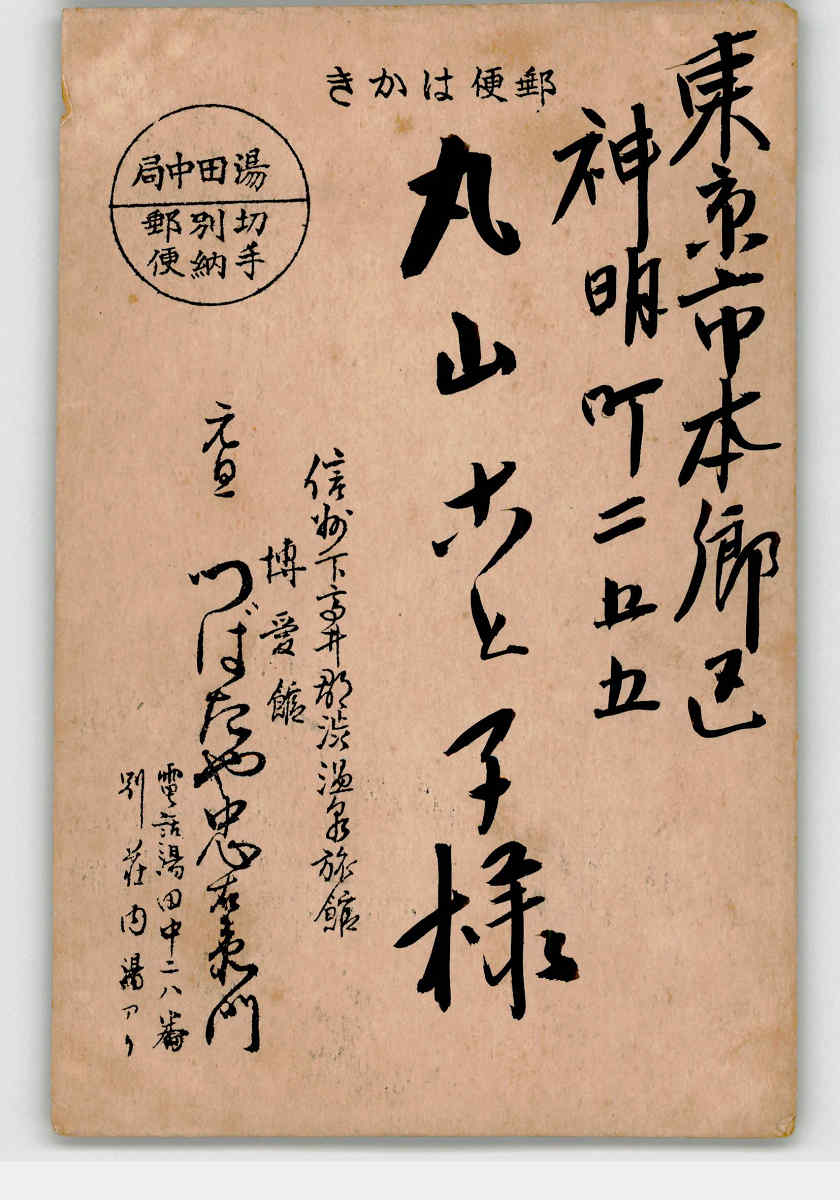 郵便はかき
東京市本郷区
神明町二五五
丸山こと子様
湯田中局
切手
別納
郵便
信州下高井郡渋温泉旅館
博愛館
元旦
つばたや忠右衛門
電話湯田中二八番
別荘内湯アリ